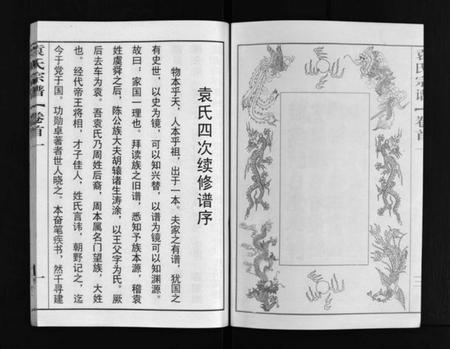 袁氏四次续修谱序
物本乎天，人本乎祖，出于一本。夫家之有谱，犹国之
有史世，以史为镜，可以知兴替，以谱为镜可以知渊源。
故曰：家国一理也。拜读族之旧谱，悉知予族本源，稽袁
姓虞舜之后，陈公族大夫胡辕诸生涛涂，以王父字为氏。厥
后去车为袁。吾袁氏乃周姓后裔，周本属名门望族，大姓
也。经代帝王将相，才子佳人，姓氏言讳，朝野记之，迄
今于党于国。功勋卓著者世人晓之。本奋笔疾书，然千寻建
袁氏宗谱
卷首
一
袁氏宗谱
卷首